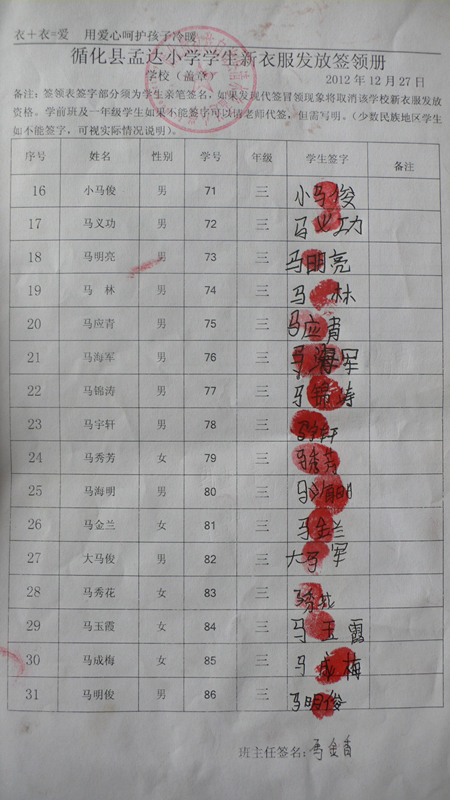 衣+衣=爱 用爱心呵护孩子冷暖
循化县孟达小学学生新衣服发放签领册
学校(盖章) 2012年12月27日
备注:签领表签字部分须为学生亲笔签名,如果发现代签冒领现象将取消该学校新衣服发放
资格。学前班及一年级学生如果不能签字可以请老师代签,但需写明。(少数民族地区学生
如不能签字,可视实际情况说明)。
序号 姓名 性别 学号 年级 学生签字 备注
16 小马俊 男 71 三 小马俊
17 马义功 男 72 三 马义功
18 马明亮 男 73 三 马明亮
19 马 林 男 74 三 马 林
20 马应青 男 75 三 马应青
21 马海军 男 76 三 马海军
22 马锦涛 男 77 三 马锦涛
23 马宇轩 男 78 三 马宇轩
24 马秀芳 女 79 三 马秀芳
25 马海明 男 80 三 马海明
26 马金兰 女 81 三 马金兰
27 大马俊 男 82 三 大马军
28 马秀花 女 83 三 马秀花
29 马玉霞 女 84 三 马玉霞
30 马成梅 女 85 三 马成梅
31 马明俊 男 86 三 马明俊
班主任签名:马金香